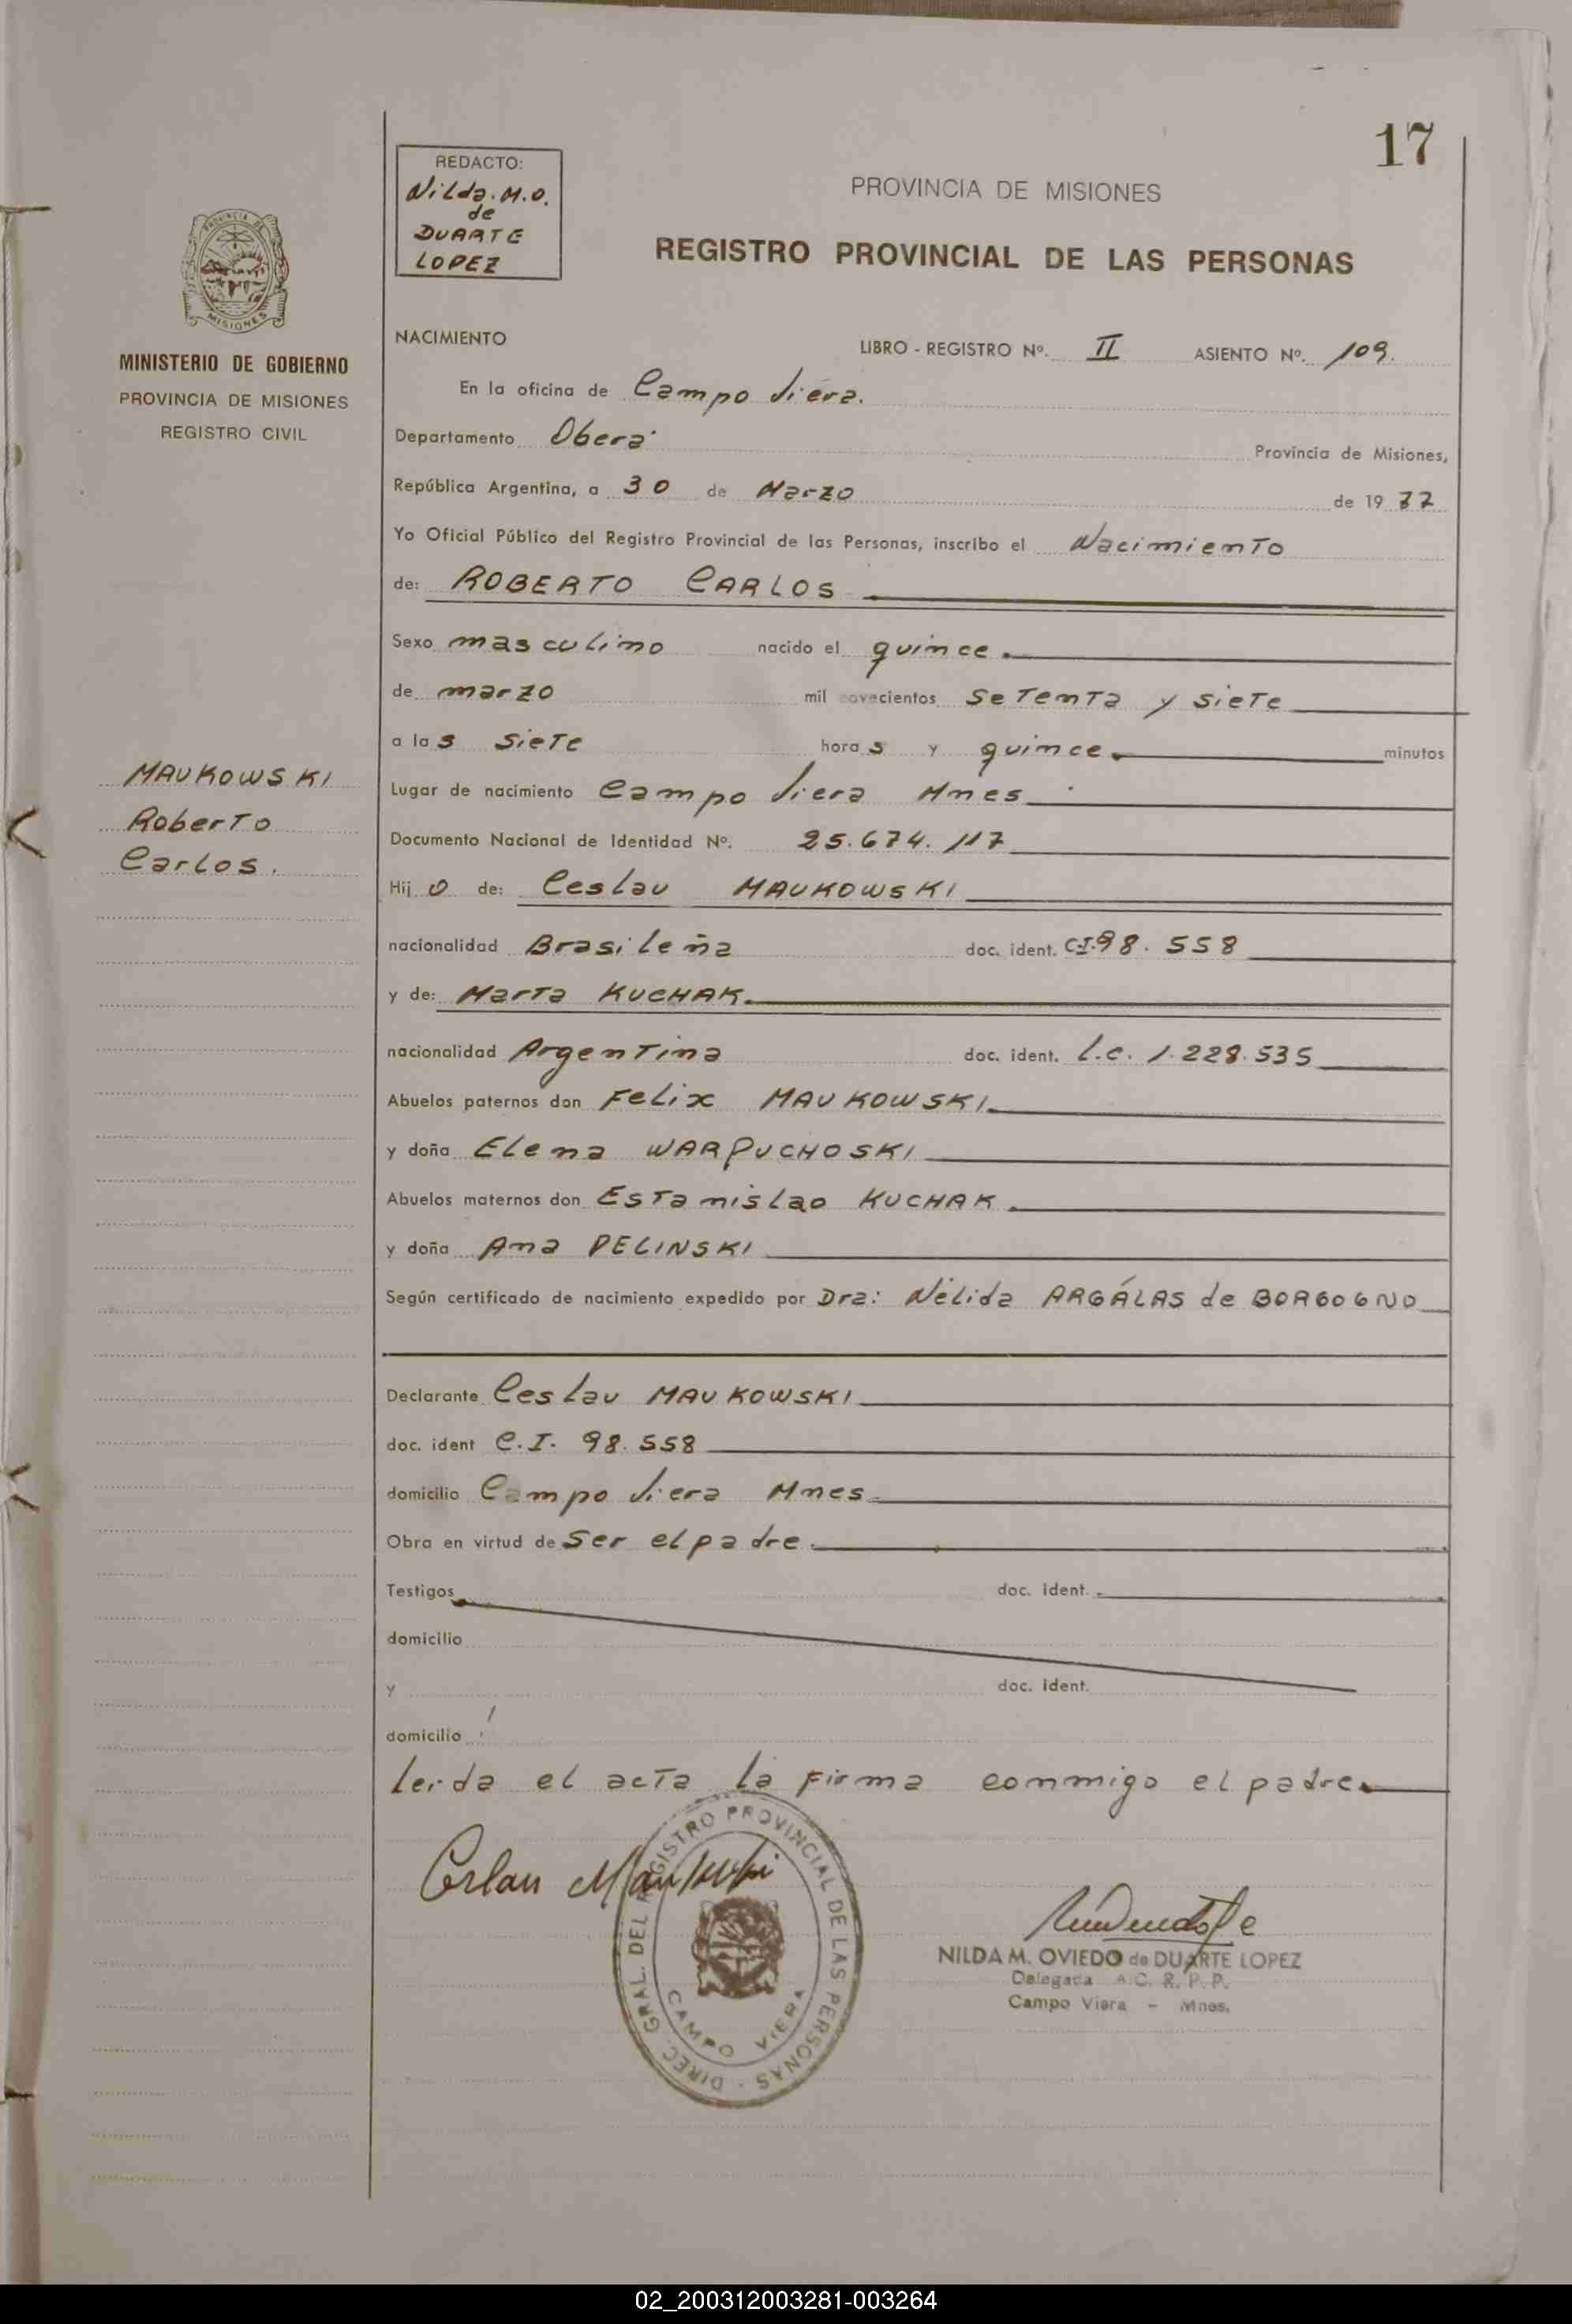 17
REDACTO:
Nilda. M.O.
de
DUARTE
LOPEZ
PROVINCIA DE MISIONES
REGISTRO PROVINCIAL DE LAS PERSONAS
PROVINCIA DE
MISIONES
MINISTERIO DE GOBIERNO
PROVINCIA DE MISIONES
REGISTRO CIVIL
MAUKOWSKI
Roberto
Carlos.
NACIMIENTO
LIBRO - REGISTRO Nº. II ASIENTO Nº. 109.
En la oficina de Campo Viera.
Departamento Oberá Provincia de Misiones,
República Argentina, a 30 de Marzo de 1977
Yo Oficial Público del Registro Provincial de las Personas, inscribo el Nacimiento
de: ROBERTO CARLOS
Sexo masculino nacido el quince.
de marzo mil novecientos setenta y siete
a las siete horas y quince. minutos
Lugar de nacimiento Campo Viera Mnes
Documento Nacional de Identidad Nº. 25.674.117
Hijo de: Ceslau MAUKOWSKI
nacionalidad Brasileña doc. ident. C.I. 98.558
y de: Marta KUCHAK.
nacionalidad Argentina doc. ident. L.C. 1.228.535
Abuelos paternos don Felix MAUKOWSKI
y doña Elena WARPUCHOSKI
Abuelos maternos don Estanislao KUCHAK.
y doña Ana PELINSKI
Según certificado de nacimiento expedido por Dra: Nélida ARGÁLAS de BORGOGNO
Declarante Ceslau MAUKOWSKI
doc. ident C.I. 98.558
domicilio Campo Viera Mnes
Obra en virtud de Ser el padre.
Testigos doc. ident.
domicilio
y doc. ident.
domicilio
Leida el acta la firma conmigo el padre.
Ceslau Maukowski
DIREC. GRAL. DEL REGISTRO PROVINCIAL DE LAS PERSONAS -
CAMPO VIERA
NILDA M. OVIEDO de DUARTE LOPEZ
Delegada A.C. R. P. P.
Campo Viera - Mnes.
02_200312003281-003264